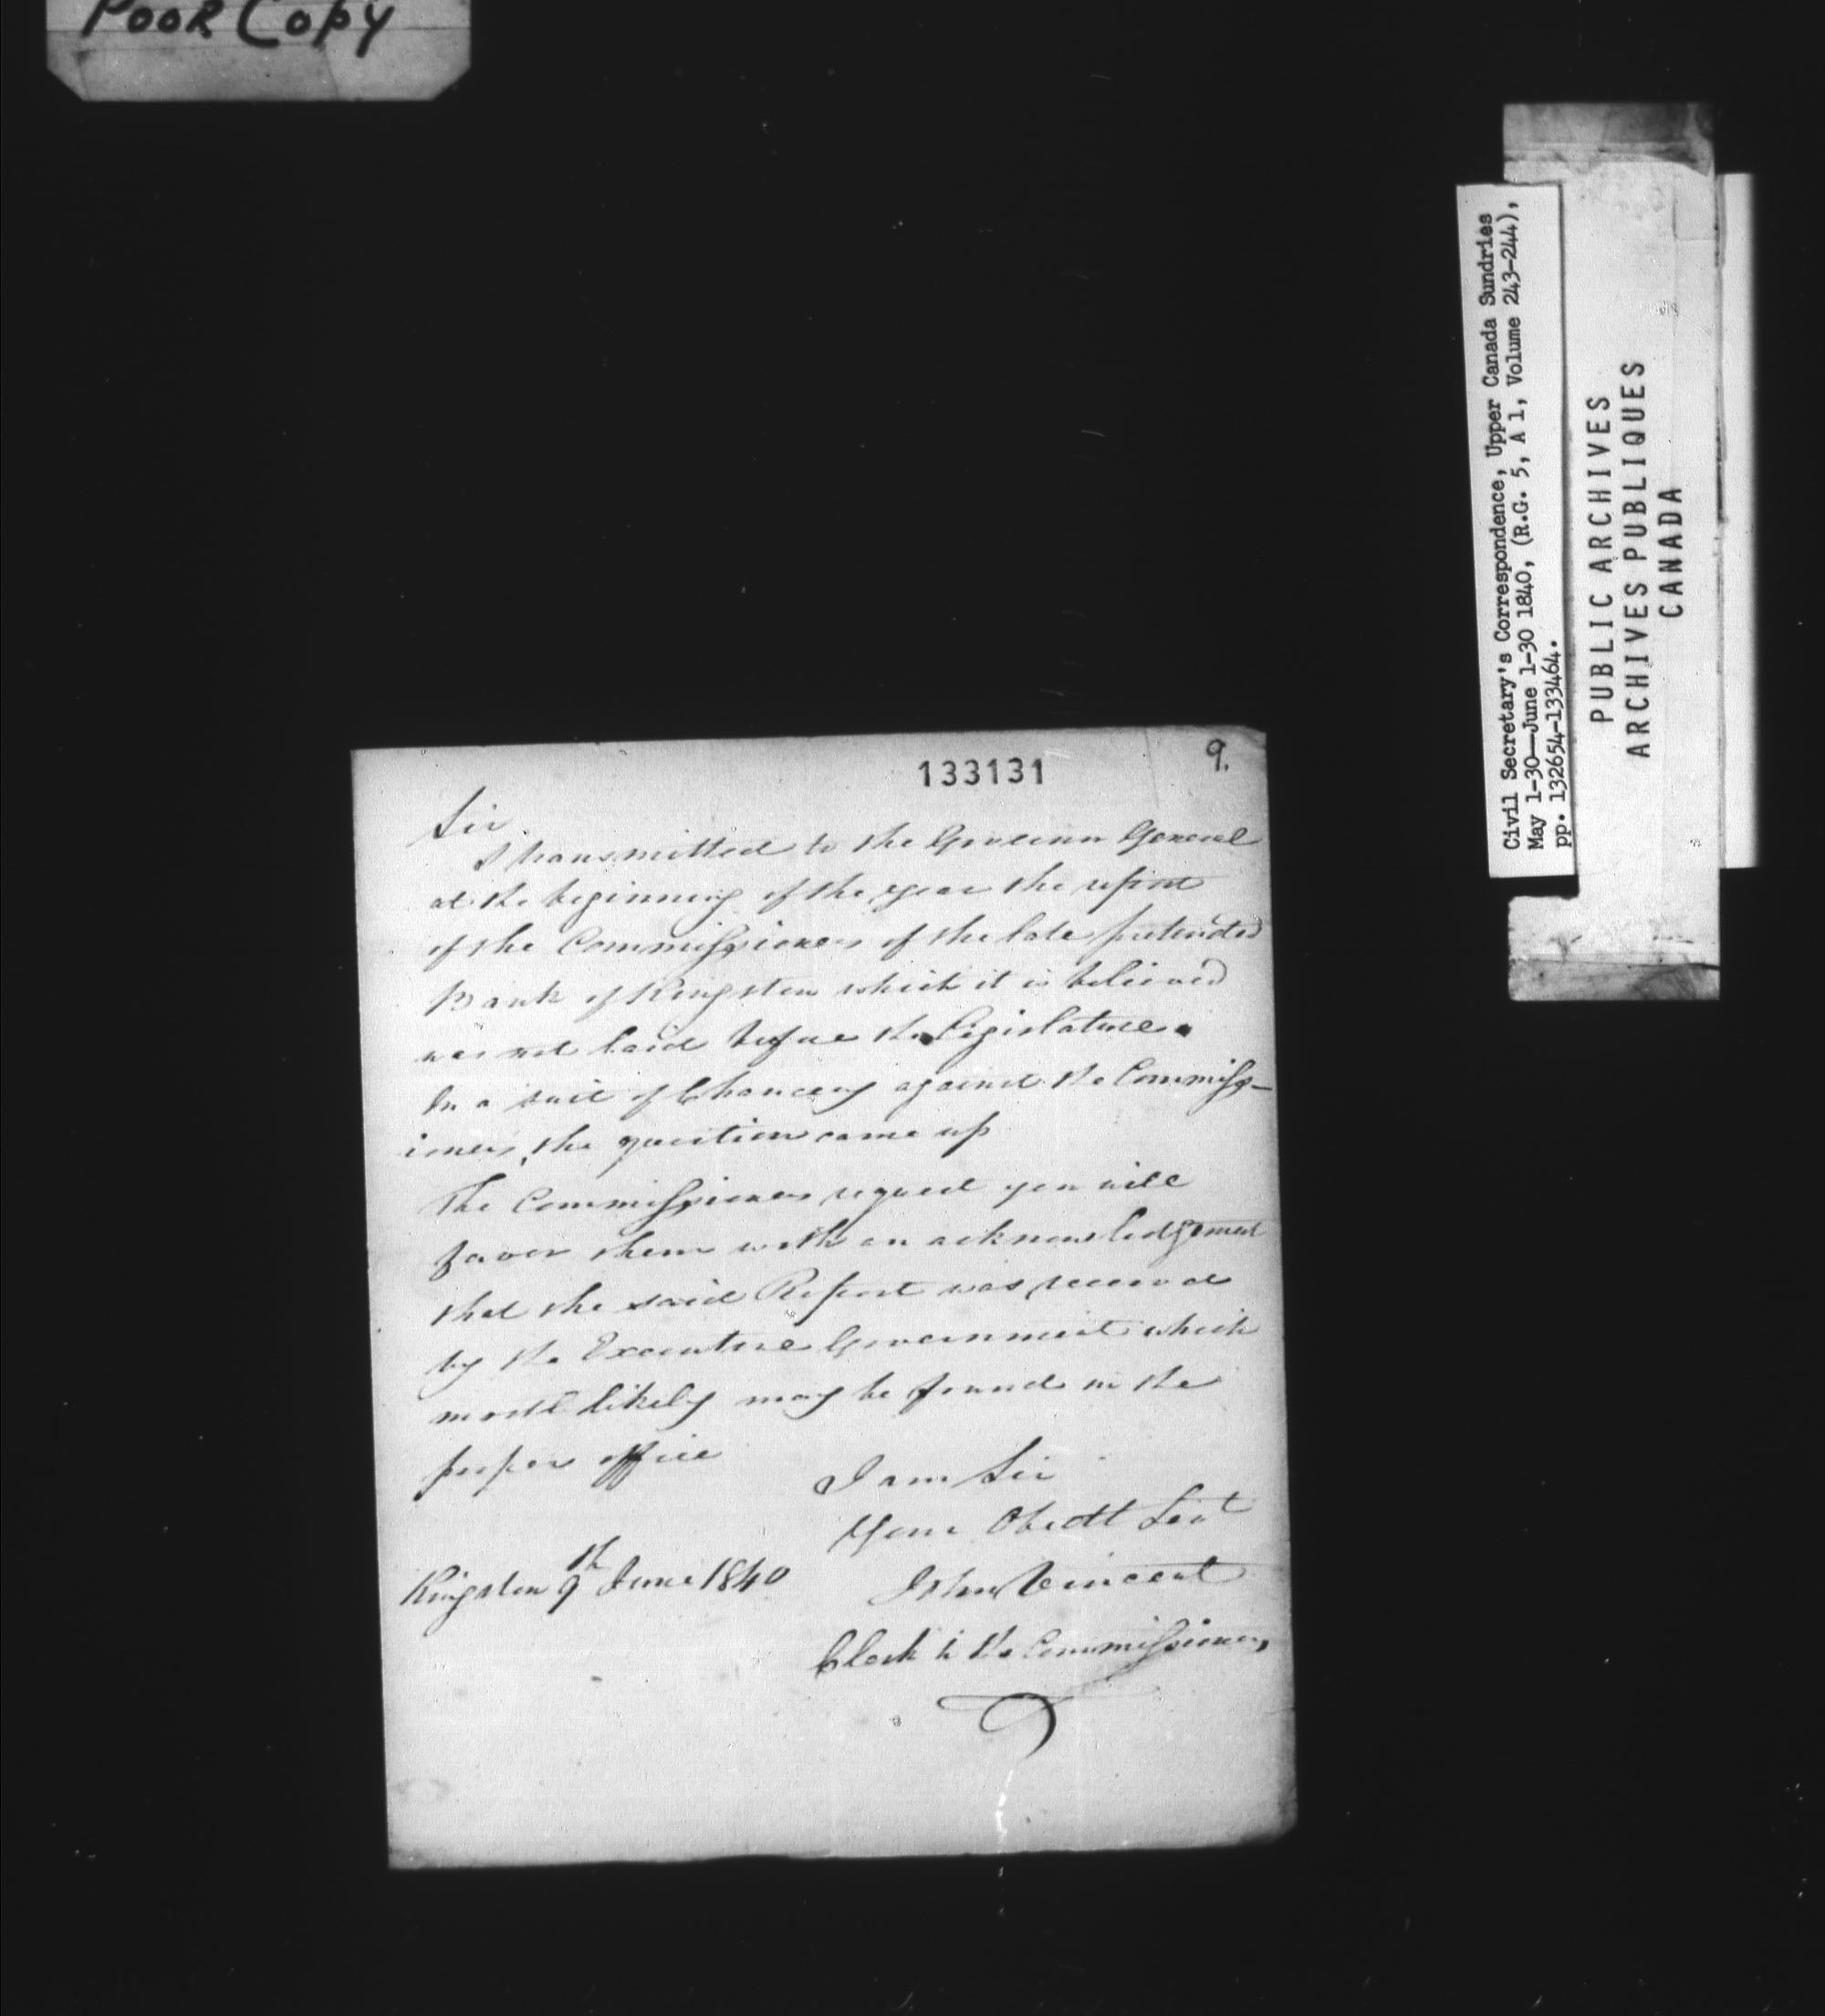 Poor Copy
133131
9.
Sir
I transmitted to the Governor General
at the beginning of the year the report
of the Commissioners of the late pretended
Bank of Kingston which it is believed
was not laid before the Legislature.
In a suit of Chancery against the Commiss-
ioners, the question came up
The Commissioners request you will
favor them with an acknowledgement
that the said Report was received
by the Executive Government which
most likely may be found in the
proper office
I am Sir
Your Obedt Sert
Kingston 9th June 1840
John Vincent
Clerk to the Commissioners
Civil Secretary's Correspondence, Upper Canada Sundries
May 1-30—June 1-30 1840, (R.G. 5, A 1, Volume 243-244),
pp. 132654-133464.
PUBLIC ARCHIVES
ARCHIVES PUBLIQUES
CANADA